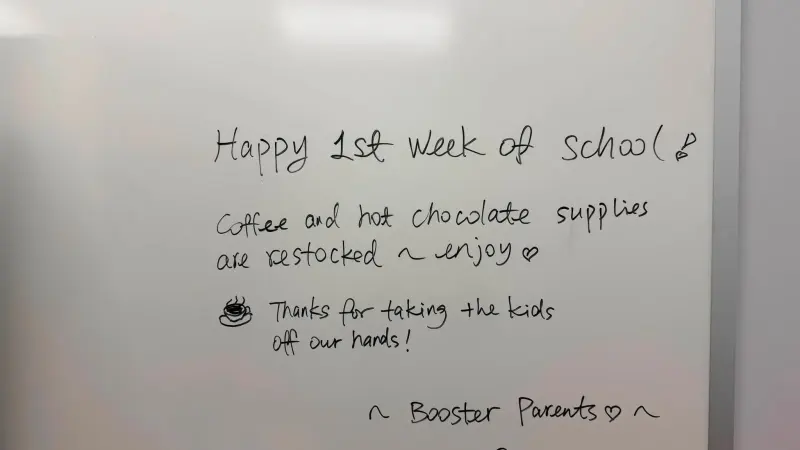 Happy 1st week of school!
Coffee and hot chocolate supplies
are restocked ~ enjoy ♡
Thanks for taking the kids
off our hands!
~ Booster Parents ♡ ~